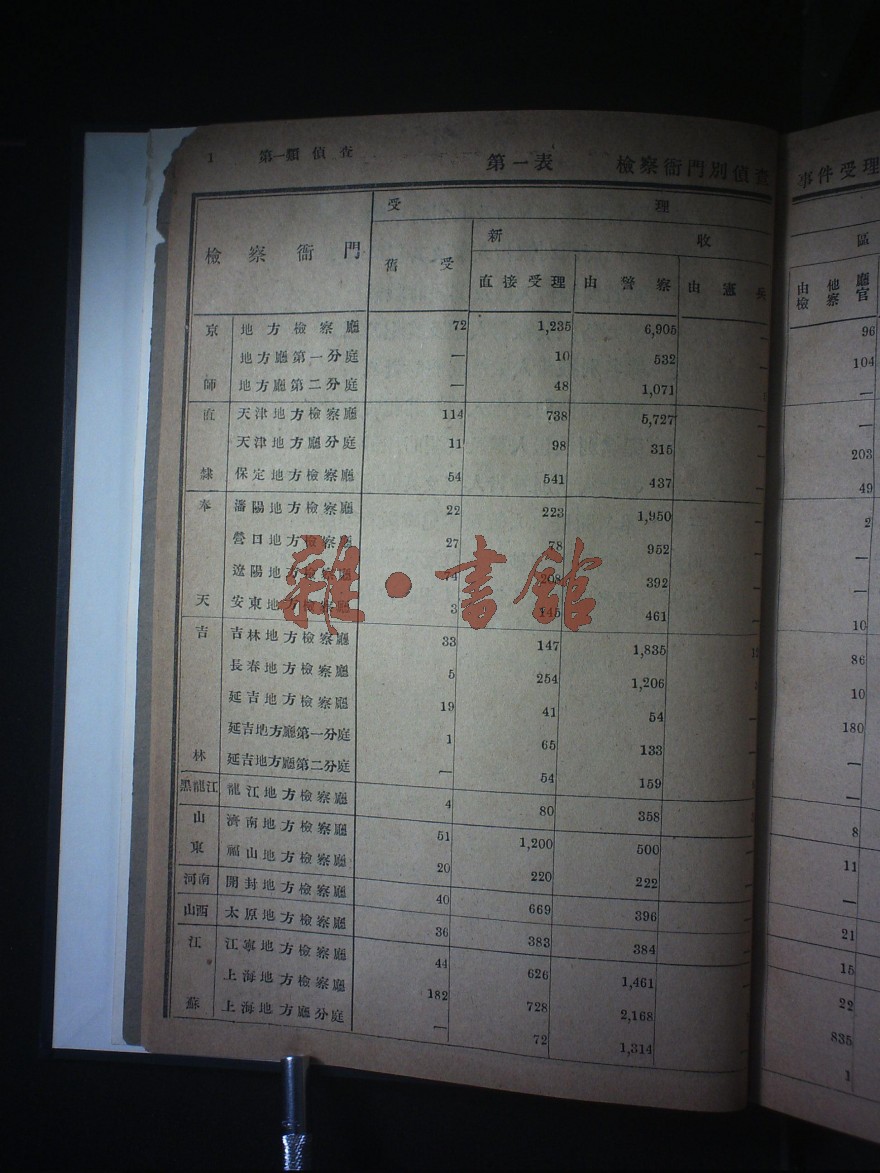 1 第一類 偵查 第一表 檢察衙門別偵查 事件受理
檢察衙門 受 理
舊受 新 收 區
直接受理 由警察 由憲兵 由他廳檢察官
京師 地方檢察廳 72 1,235 6,905 — 96
地方廳第一分庭 — 10 532 — 104
地方廳第二分庭 — 48 1,071 —
直隸 天津地方檢察廳 114 738 5,727 — 203
天津地方廳分庭 11 98 315 — 49
保定地方檢察廳 54 541 437 — 2
奉天 瀋陽地方檢察廳 22 223 1,950
營口地方檢察廳 27 78 952
遼陽地方檢察廳 208 392
安東地方檢察廳 3 145 461 10
吉林 吉林地方檢察廳 33 147 1,835 86
長春地方檢察廳 5 254 1,206 10
延吉地方檢察廳 19 41 54 180
延吉地方廳第一分庭 1 65 133 —
延吉地方廳第二分庭 — 54 159 —
黑龍江 龍江地方檢察廳 4 80 358 8
山東 濟南地方檢察廳 51 1,200 500 11
福山地方檢察廳 20 220 222 —
河南 開封地方檢察廳 40 669 396 21
山西 太原地方檢察廳 36 383 384 15
江蘇 江寧地方檢察廳 44 626 1,461 22
上海地方檢察廳 182 728 2,168 835
上海地方廳分庭 — 72 1,314 1
雜·書館